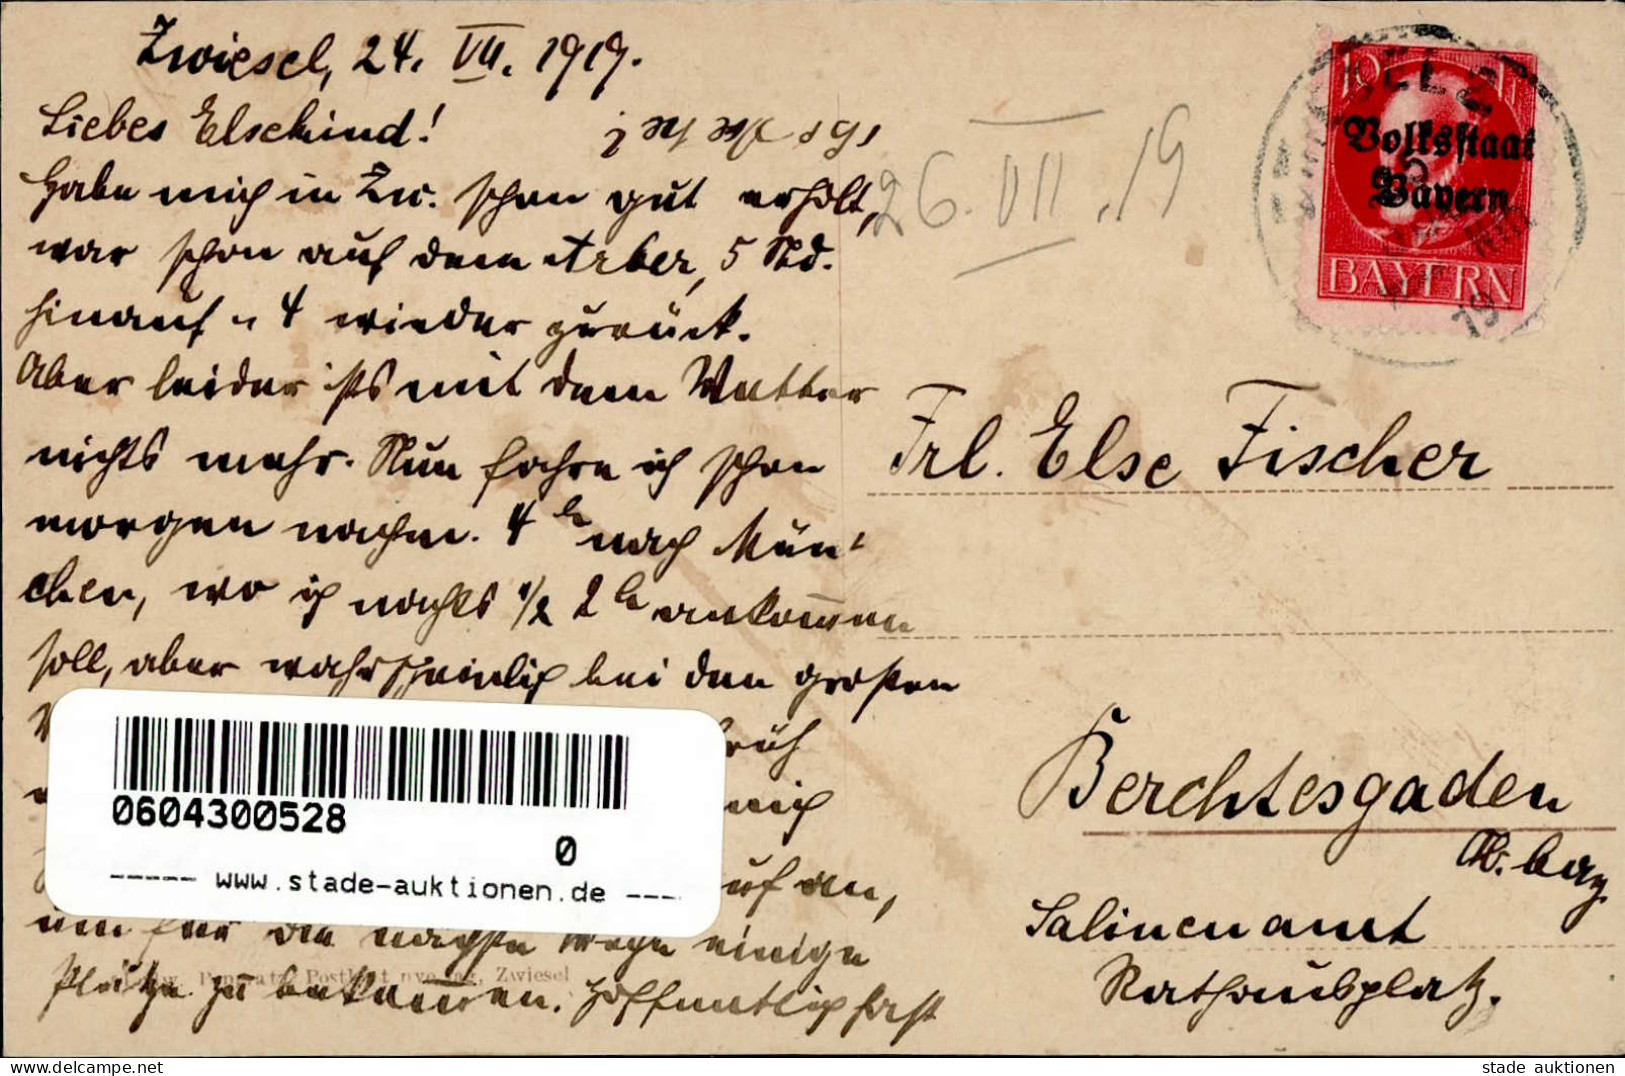 Zwiesel, 24. VII. 1919.
Liebes Elsekind!
Habe mich in Zw. schon gut erholt,
war schon auf dem Arber, 5 Std.
hinauf u 4 wieder zurück.
Aber leider ists mit dem Wetter
nichts mehr. Nun fahre ich schon
morgen nachm. 4 h nach Mün-
chen, wo ich nachts 1/2 2 h ankommen
soll, aber wahrscheinlich bei den großen
früh
mich
auf an,
um für die nächste Woche einige
Plätze zu bekommen. Hoffentlich hast
26. VII. 19
10
Volksstaat
Bayern
BAYERN
19
Frl. Else Fischer
Berchtesgaden
Ob. bay.
Salinenamt
Rathausplatz.
0604300528
0
----- www.stade-auktionen.de ---
Zwiesel
stade auktionen